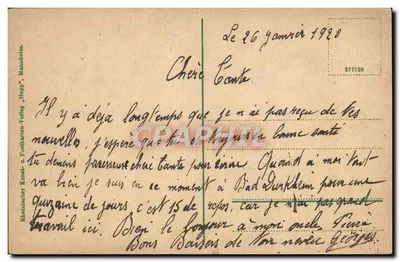 Le 26 Janvier 1920
277198
Chère Tante
Il y a déjà longtemps que je n'ai pas reçu de tes
nouvelles, j'espère que tu es toujours bonne santé
tu deviens paresseuse chère tante pour écrire. Quand à moi tout
va bien je suis en ce moment à Bad Durkheim pour une
quinzaine de jours, c'est 15 de repos, car je n'ai pas grand
travail ici. Bien le bonjour à mon oncle Pierre
Bons Baisers de ton neveu Georges
Rheinischer Kunst- u. Postkarten-Verlag „Hepp", Mannheim.